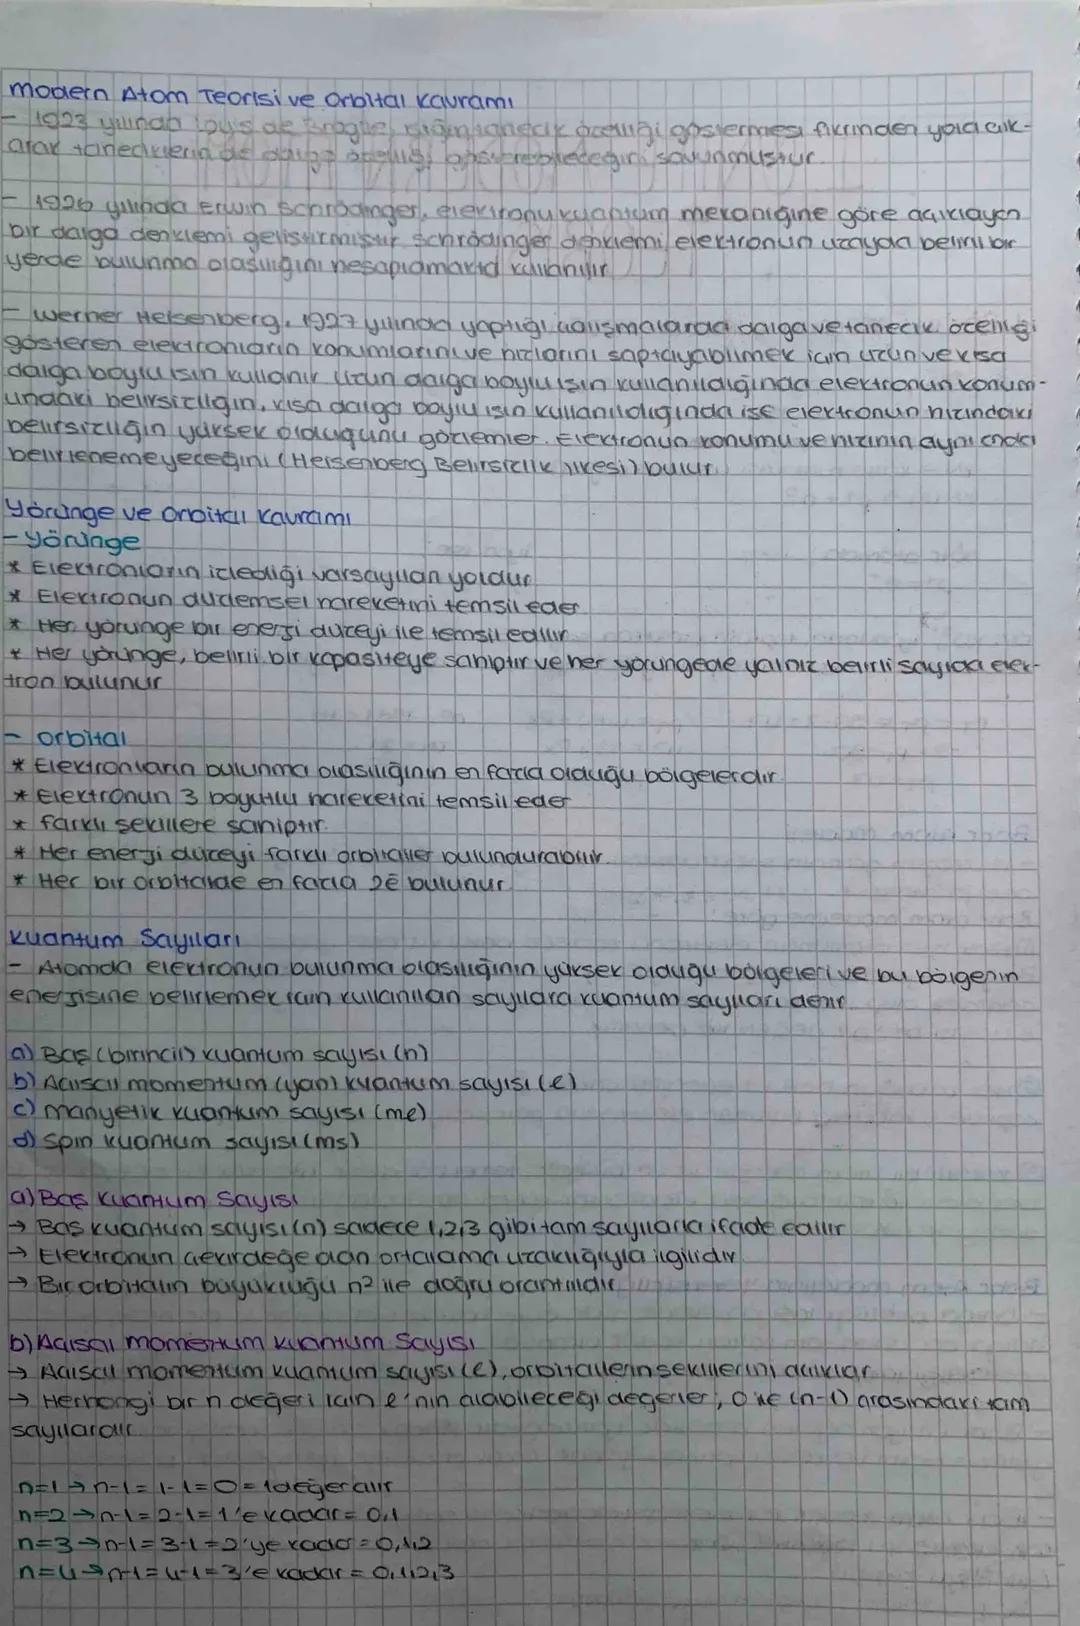 modern Atom Teorisi ve Orbital kavramı
- 1923 yılında Loys de Brogne, ışığın tanecik özelliği göstermesi fikrinden yola çık-
arak taneciklerin de dalga özelliği gösterebileceğini savunmuştur.
- 1926 yılında Erwin Schrödinger, elektronu kuantum mekaniğine göre açıklayan
bir dalga denklemi geliştirmiştir. Schrödinger denklemi, elektronun uzayda belirli bir
yerde bulunma olasılığını hesaplamakta kullanılır.
- Werner Heisenberg, 1927 yılında yaptığı çalışmalarda dalga ve tanecik özelliği
gösteren elektronların konumlarını ve hızlarını saptayabilmek için uzun ve kısa
dalga boylu ışın kullanır. Uzun dalga boylu ışın kullanıldığında elektronun konum-
undaki belirsizliğin, kısa dalga boylu ışın kullanıldığında ise elektronun hızındaki
belirsizliğin yüksek olduğunu gözlemler. Elektronun konumu ve hızının aynı anda
belirlenemeyeceğini (Heisenberg Belirsizlik ilkesi) bulur.
Yörünge ve Orbital Kavramı
- Yörünge
* Elektronların izlediği varsayılan yoldur.
* Elektronun düzlemsel hareketini temsil eder
* Her yörünge bir enerji düzeyi ile temsil edilir
* Her yörünge, belirli bir kapasiteye sahiptir ve her yörüngede yalnız belirli sayıda elek-
tron bulunur
- Orbital
* Elektronların bulunma olasılığının en fazla olduğu bölgelerdir.
* Elektronun 3 boyutlu hareketini temsil eder
* farklı şekillere sahiptir.
* Her enerji düzeyi farklı orbitaller bulundurabilir.
* Her bir orbitalde en fazla 2ē bulunur.
Kuantum Sayıları
- Atomda elektronun bulunma olasılığının yüksek olduğu bölgeleri ve bu bölgenin
enerjisine belirlemek için kullanılan sayılara kuantum sayıları denir.
a) Baş (birincil) kuantum sayısı (n)
b) Açısal momentum (yan) kuantum sayısı (ℓ)
c) manyetik kuantum sayısı (mℓ)
d) Spin kuantum sayısı (ms)
a) Baş Kuantum Sayısı
→ Baş kuantum sayısı (n) sadece 1,2,3 gibi tam sayılarla ifade edilir
→ Elektronun çekirdeğe olan ortalama uzaklığıyla ilgilidir
→ Bir orbitalin büyüklüğü n² ile doğru orantılıdır.
b) Açısal momentum kuantum Sayısı
→ Açısal momentum kuantum sayısı (ℓ), orbitallerin şekillerini açıklar.
→ Herhangi bir n değeri için ℓ'nin alabileceği değerler; 0 ile (n-1) arasındaki tam
sayılardır.
n=1 → n-1 = 1-1 = 0 = 1 değer alır
n=2 → n-1 = 2-1 = 1'e kadar = 0,1
n=3 → n-1 = 3-1 = 2'ye kadar = 0,1,2
n=4 → n-1 = 4-1 = 3'e kadar = 0,1,2,3